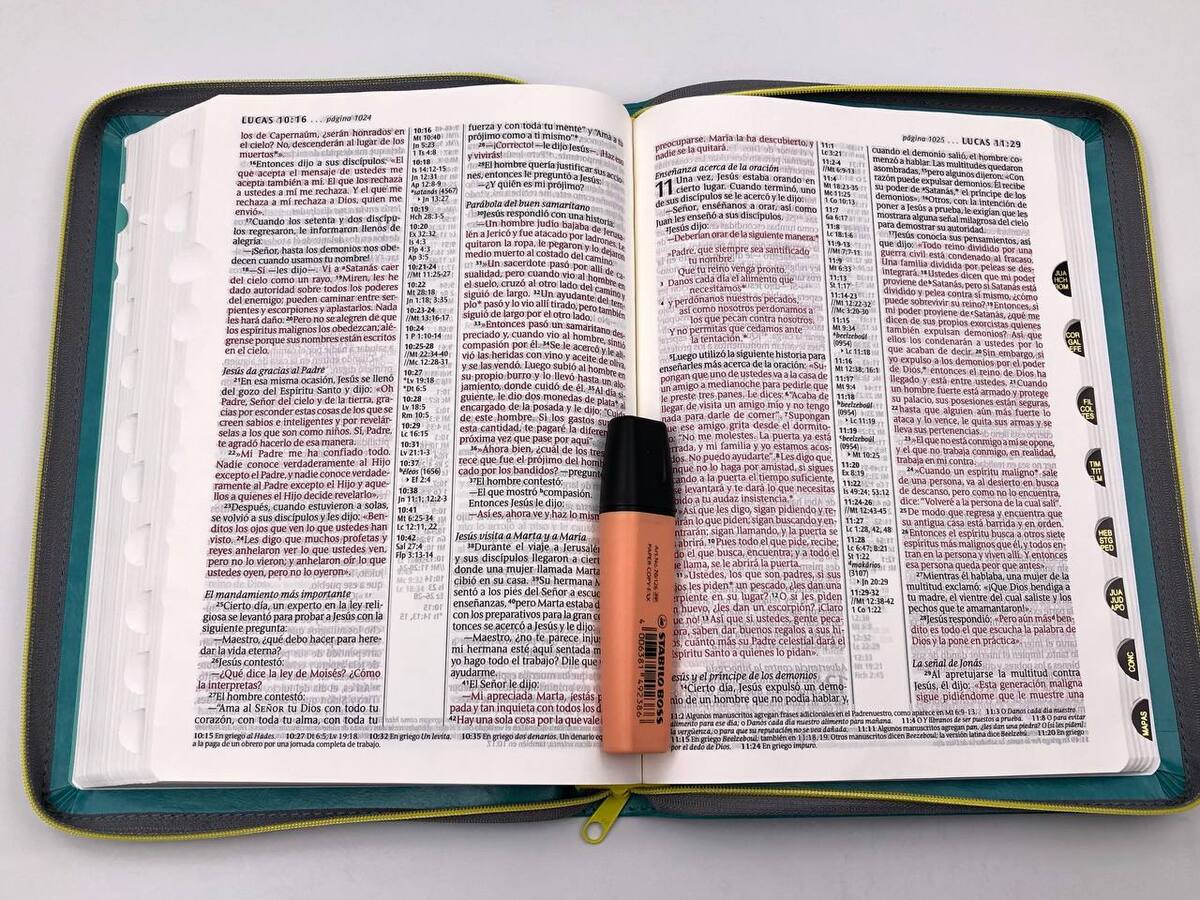 LUCAS 10:16 ... página 1024
los de Capernaúm, ¿serán honrados en
el cielo? No, descenderán al lugar de los
muertos*».
¹⁶Entonces dijo a sus discípulos: «El
que acepta el mensaje de ustedes me
acepta también a mí. El que los rechaza
a ustedes a mí me rechaza. Y el que me
rechaza a mí rechaza a Dios, quien me
envió».
¹⁷Cuando los setenta y dos discípu-
los regresaron, le informaron llenos de
alegría:
—¡Señor, hasta los demonios nos obe-
decen cuando usamos tu nombre!
¹⁸—Sí —les dijo—. Vi a Satanás caer
del cielo como un rayo. ¹⁹Miren, les he
dado autoridad sobre todos los poderes
del enemigo; pueden caminar entre ser-
pientes y escorpiones y aplastarlos. Nada
les hará daño. ²⁰Pero no se alegren de que
los espíritus malignos los obedezcan; alé-
grense porque sus nombres están escritos
en el cielo.
Jesús da gracias al Padre
²¹En esa misma ocasión, Jesús se llenó
del gozo del Espíritu Santo y dijo: «Oh
Padre, Señor del cielo y de la tierra, gra-
cias por esconder estas cosas de los que se
creen sabios e inteligentes y por revelár-
selas a los que son como niños. Sí, Padre,
te agradó hacerlo de esa manera.
²²»Mi Padre me ha confiado todo.
Nadie conoce verdaderamente al Hijo
excepto el Padre, y nadie conoce verdade-
ramente al Padre excepto el Hijo y aque-
llos a quienes el Hijo decide revelarlo».
²³Después, cuando estuvieron a solas,
se volvió a sus discípulos y les dijo: «Ben-
ditos los ojos que ven lo que ustedes han
visto. ²⁴Les digo que muchos profetas y
reyes anhelaron ver lo que ustedes ven,
pero no lo vieron; y anhelaron oír lo que
ustedes oyen, pero no lo oyeron».
El mandamiento más importante
²⁵Cierto día, un experto en la ley reli-
giosa se levantó para probar a Jesús con la
siguiente pregunta:
—Maestro, ¿qué debo hacer para here-
dar la vida eterna?
²⁶Jesús contestó:
—¿Qué dice la ley de Moisés? ¿Cómo
la interpretas?
²⁷El hombre contestó:
—"Ama al SEÑOR tu Dios con todo tu
corazón, con toda tu alma, con toda tu
10:16
Mt 10:40
Jn 5:23
1 Ts 4:8
10:18
Is 14:12-15
Jn 12:31
Ap 12:8-9
satanás (4567)
Jn 13:27
10:19
Hch 28:3-5
10:20
Ex 32:32
Is 4:3
Flp 4:3
Ap 3:5
10:21-24
//Mt 11:25-27
10:22
Mt 28:18
Jn 1:18; 3:35
10:23-24
//Mt 13:16-17
10:24
1 P 1:10-14
10:25-28
//Mt 22:34-40
//Mc 12:28-31
10:27
*Lv 19:18
*Dt 6:5
10:28
Lv 18:5
Rm 10:5
10:29
Lc 16:15
10:31
Lv 21:1-3
10:37
éleos (1656)
Ef 2:4
10:38
Jn 11:1; 12:2-3
10:41
Mt 6:25-34
Lc 12:11, 22
10:42
Sal 27:4
Flp 3:13-14
fuerza y con toda tu mente" y "Ama a tu
prójimo como a ti mismo"*.
²⁸—¡Correcto! —le dijo Jesús—. ¡Haz eso
y vivirás!
²⁹El hombre quería justificar sus accio-
nes, entonces le preguntó a Jesús:
—¿Y quién es mi prójimo?
Parábola del buen samaritano
³⁰Jesús respondió con una historia:
—Un hombre judío bajaba de Jerusa-
lén a Jericó y fue atacado por ladrones. Le
quitaron la ropa, le pegaron y lo dejaron
medio muerto al costado del camino.
³¹»Un sacerdote pasó por allí de ca-
sualidad, pero cuando vio al hombre en
el suelo, cruzó al otro lado del camino y
siguió de largo. ³²Un ayudante del tem-
plo* pasó y lo vio allí tirado, pero también
siguió de largo por el otro lado.
³³»Entonces pasó un samaritano des-
preciado y, cuando vio al hombre, sintió
compasión por él. ³⁴Se le acercó y le ali-
vió las heridas con vino y aceite de oliva,
y se las vendó. Luego subió al hombre en
su propio burro y lo llevó hasta un alo-
jamiento, donde cuidó de él. ³⁵Al día si-
guiente, le dio dos monedas de plata* al
encargado de la posada y le dijo: "Cuida
de este hombre. Si los gastos
esta cantidad, te pagaré la difere
próxima vez que pase por aquí".
³⁶»Ahora bien, ¿cuál de los tres
rece que fue el prójimo del homb
cado por los bandidos? —pregunt
³⁷El hombre contestó:
—El que mostró compasión.
Entonces Jesús le dijo:
—Así es, ahora ve y haz lo mism
Jesús visita a Marta y a María
³⁸Durante el viaje a Jerusalé
y sus discípulos llegaron a cier
donde una mujer llamada Marta
cibió en su casa. ³⁹Su hermana M
sentó a los pies del Señor a escu
enseñanzas, ⁴⁰pero Marta estaba d
con los preparativos para la gran c
tonces se acercó a Jesús y le dijo:
—Maestro, ¿no te parece injus
mi hermana esté aquí sentada m
yo hago todo el trabajo? Dile que
ayudarme.
⁴¹El Señor le dijo:
—Mi apreciada Marta, ¡estás p
pada y tan inquieta con todos los d
⁴²Hay una sola cosa por la que vale
10:15 En griego al Hades. 10:27 Dt 6:5; Lv 19:18. 10:32 En griego Un levita. 10:35 En griego dos denarios. Un denario e
a la paga de un obrero por una jornada completa de trabajo.
página 1025 ... LUCAS 11:29
preocuparse. María la ha descubierto, y
nadie se la quitará.
Enseñanza acerca de la oración
11 Una vez, Jesús estaba orando en
cierto lugar. Cuando terminó, uno
de sus discípulos se le acercó y le dijo:
—Señor, enséñanos a orar, así como
Juan les enseñó a sus discípulos.
²Jesús dijo:
—Deberían orar de la siguiente manera:*
»Padre, que siempre sea santificado
tu nombre.
Que tu reino venga pronto.
³ Danos cada día el alimento que
necesitamos*
⁴ y perdónanos nuestros pecados,
así como nosotros perdonamos a
los que pecan contra nosotros.
Y no permitas que cedamos ante
la tentación.*
⁵Luego utilizó la siguiente historia para
enseñarles más acerca de la oración: «Su-
pongan que uno de ustedes va a la casa de
un amigo a medianoche para pedirle que
le preste tres panes. Le dices: ⁶"Acaba de
llegar de visita un amigo mío y no tengo
nada para darle de comer". ⁷Supongan
que ese amigo grita desde el dormito-
"No me molestes. La puerta ya está
rrada, y mi familia y yo estamos acos-
No puedo ayudarte". ⁸Les digo que,
que no lo haga por amistad, si sigues
a la puerta el tiempo suficiente,
se levantará y te dará lo que necesitas
bido a tu audaz insistencia.*
Así que les digo, sigan pidiendo y re-
rán lo que piden; sigan buscando y en-
trarán; sigan llamando, y la puerta se
abrirá. ¹⁰Pues todo el que pide, recibe;
o el que busca, encuentra; y a todo el
llama, se le abrirá la puerta.
¹¹»Ustedes, los que son padres, si sus
jos les piden* un pescado, ¿les dan una
erpiente en su lugar? ¹²O si les piden
huevo, ¿les dan un escorpión? ¡Claro
no! ¹³Así que si ustedes, gente peca-
ora, saben dar buenos regalos a sus hi-
cuánto más su Padre celestial dará el
píritu Santo a quienes lo pidan».
esús y el príncipe de los demonios
¹⁴Cierto día, Jesús expulsó un demo-
nio de un hombre que no podía hablar y,
11:1
Lc 3:21
11:2-4
//Mt 6:9-13
11:4
Mt 18:23-35
Mc 11:25
1 Co 10:13
11:7
Ga 6:17
11:8
Lc 18:1-6
11:9-13
//Mt 7:7-11
11:9
Mt 6:33
11:13
St 1:17
11:14-23
//Mt 12:22-32
//Mc 3:20-30
11:15
Mt 9:34
beelzeboúl
(0954)
Lc 11:18
11:16
Mt 12:38; 16:1
11:17
Mt 9:4
11:18
beelzeboúl
(0954)
Lc 11:19
11:19
beelzeboúl
(0954)
Mt 10:25
11:20
Ex 8:19
11:22
Is 49:24; 53:12
11:24-26
//Mt 12:43-45
11:27
Lc 1:28, 42, 48
11:28
Lc 6:47; 8:21
St 1:22
makários
(3107)
Jn 20:29
11:29-32
//Mt 12:38-42
1 Co 1:22
cuando el demonio salió, el hombre co-
menzó a hablar. Las multitudes quedaron
asombradas, ¹⁵pero algunos dijeron: «Con
razón puede expulsar demonios. Él recibe
su poder de Satanás,* el príncipe de los
demonios». ¹⁶Otros, con la intención de
poner a Jesús a prueba, le exigían que les
mostrara alguna señal milagrosa del cielo
para demostrar su autoridad.
¹⁷Jesús conocía sus pensamientos, así
que dijo: «Todo reino dividido por una
guerra civil está condenado al fracaso.
Una familia dividida por peleas se des-
integrará. ¹⁸Ustedes dicen que mi poder
proviene de Satanás, pero si Satanás está
dividido y pelea contra sí mismo, ¿cómo
puede sobrevivir su reino? ¹⁹Entonces, si
mi poder proviene de Satanás, ¿qué me
dicen de sus propios exorcistas quienes
también expulsan demonios? Así que
ellos los condenarán a ustedes por lo
que acaban de decir. ²⁰Sin embargo, si
yo expulso a los demonios por el poder
de Dios,* entonces el reino de Dios ha
llegado y está entre ustedes. ²¹Cuando
un hombre fuerte está armado y protege
su palacio, sus posesiones están seguras,
²²hasta que alguien aún más fuerte lo
ataca y lo vence, le quita sus armas y se
lleva sus pertenencias.
²³»El que no está conmigo a mí se opone,
y el que no trabaja conmigo, en realidad,
trabaja en mi contra.
²⁴»Cuando un espíritu maligno* sale
de una persona, va al desierto en busca
de descanso, pero como no lo encuentra,
dice: "Volveré a la persona de la cual salí".
²⁵De modo que regresa y encuentra que
su antigua casa está barrida y en orden.
²⁶Entonces el espíritu busca a otros siete
espíritus más malignos que él, y todos en-
tran en la persona y viven allí. Y entonces
esa persona queda peor que antes».
²⁷Mientras él hablaba, una mujer de la
multitud exclamó: «¡Que Dios bendiga a
tu madre, el vientre del cual saliste y los
pechos que te amamantaron!».
²⁸Jesús respondió: «Pero aún más ben-
dito es todo el que escucha la palabra de
Dios y la pone en práctica».
La señal de Jonás
²⁹Al apretujarse la multitud contra
Jesús, él dijo: «Esta generación maligna
sigue pidiéndome que le muestre una
11:2 Algunos manuscritos agregan frases adicionales en el Padrenuestro, como aparece en Mt 6:9-13. 11:3 O Danos cada día nuestro
alimento para ese día; o Danos cada día nuestro alimento para mañana. 11:4 O Y líbranos de ser puestos a prueba. 11:8 O para evitar
la vergüenza, o para que su reputación no se vea dañada. 11:11 Algunos manuscritos agregan pan, ¿les dan una piedra? O [si les piden].
11:15 En griego Beelzeboul; también en 11:18, 19. Otros manuscritos dicen Beezeboul; la versión latina dice Beelzebú. 11:20 En griego
por el dedo de Dios. 11:24 En griego impuro.
JUA
HCH
ROM
COR
GAL
EFE
FIL
COL
TES
TIM
TIT
FLM
HEB
STG
PED
JUA
JUD
APO
CONC
MAPAS
STABILO BOSS
4 006381 492386